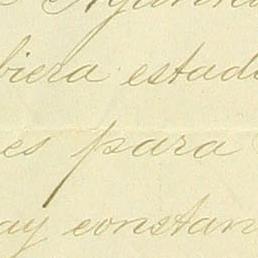 biera estado
es para
ay constan